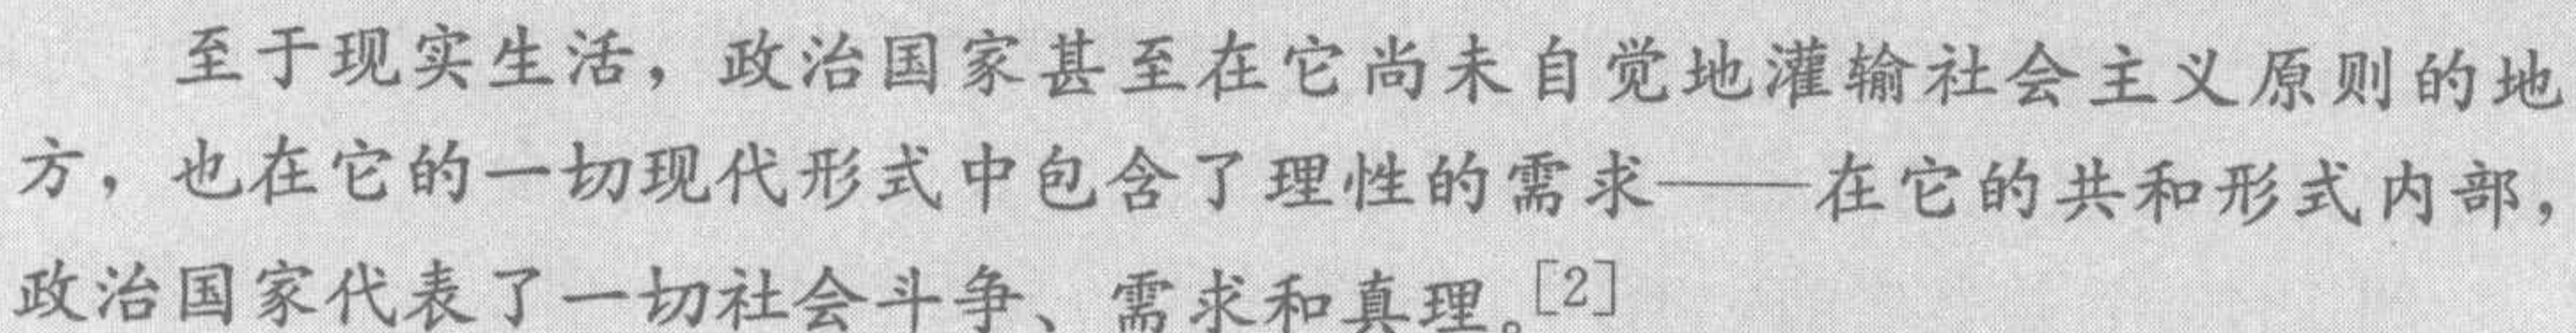 至于现实生活，政治国家甚至在它尚未自觉地灌输社会主义原则的地
方，也在它的一切现代形式中包含了理性的需求——在它的共和形式内部，
政治国家代表了一切社会斗争、需求和真理。[2]